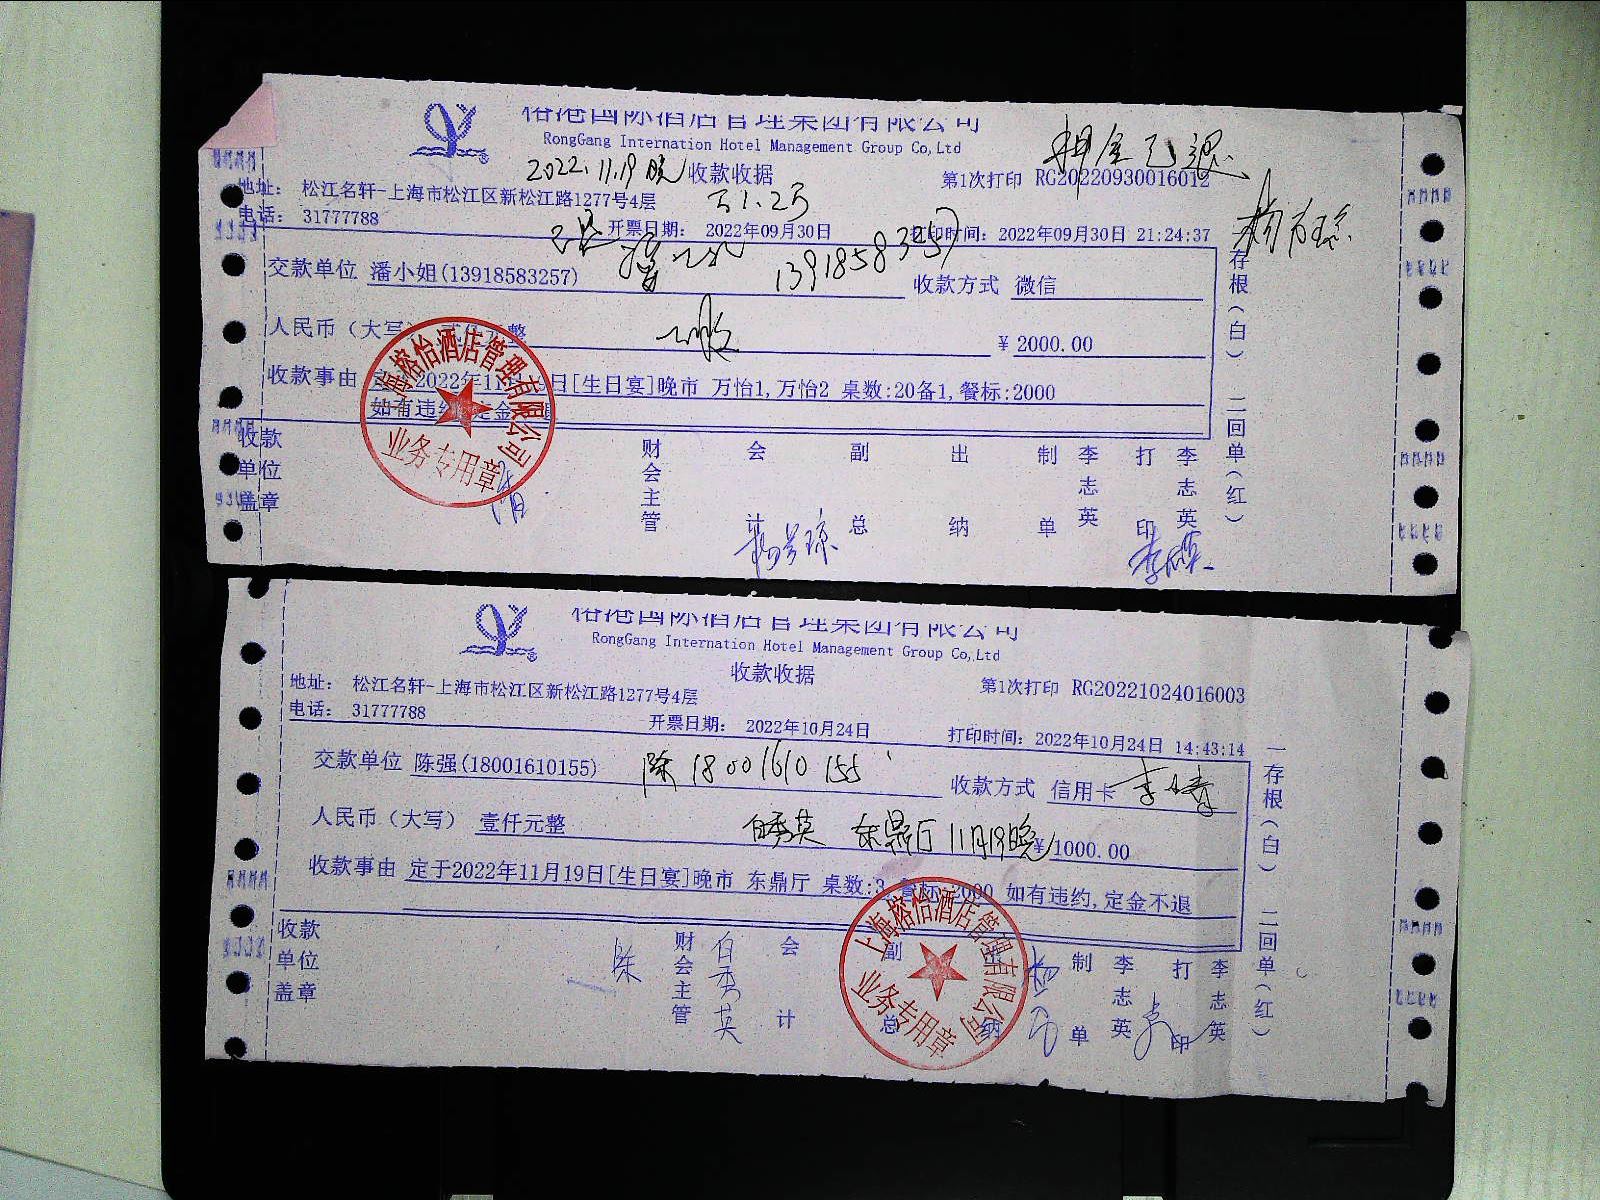 RongGang Internation Hotel Management Group Co,Ltd
2022.11.19晚 收款收据
第1次打印 RG20220930016012
地址: 松江名轩-上海市松江区新松江路1277号4层
电话: 31777788
开票日期: 2022年09月30日
打印时间: 2022年09月30日 21:24:37
交款单位 潘小姐(13918583257)
13918583257
收款方式 微信
人民币(大写) 贰仟元整
¥ 2000.00
收款事由 定于2022年11月19日[生日宴]晚市 万怡1,万怡2 桌数:20备1,餐标:2000
如有违约,定金不退
上海榕怡酒店管理有限公司
业务专用章
收款单位盖章
财会主管
会
副总
出纳
制单
李志英
打印
李志英
存根(白) 二回单(红)
RongGang Internation Hotel Management Group Co,Ltd
收款收据
第1次打印 RG20221024016003
地址: 松江名轩-上海市松江区新松江路1277号4层
电话: 31777788
开票日期: 2022年10月24日
打印时间: 2022年10月24日 14:43:14
交款单位 陈强(18001610155)
陈 18001610155
收款方式 信用卡
人民币(大写) 壹仟元整
白秀英 东鼎厅 11月19晚
¥ 1000.00
收款事由 定于2022年11月19日[生日宴]晚市 东鼎厅 桌数:3,餐标:2000 如有违约,定金不退
上海榕怡酒店管理有限公司
业务专用章
收款单位盖章
陈
财会主管
白秀英
会计
副总
出纳
制单
李志英
打印
李志英
一存根(白) 二回单(红)